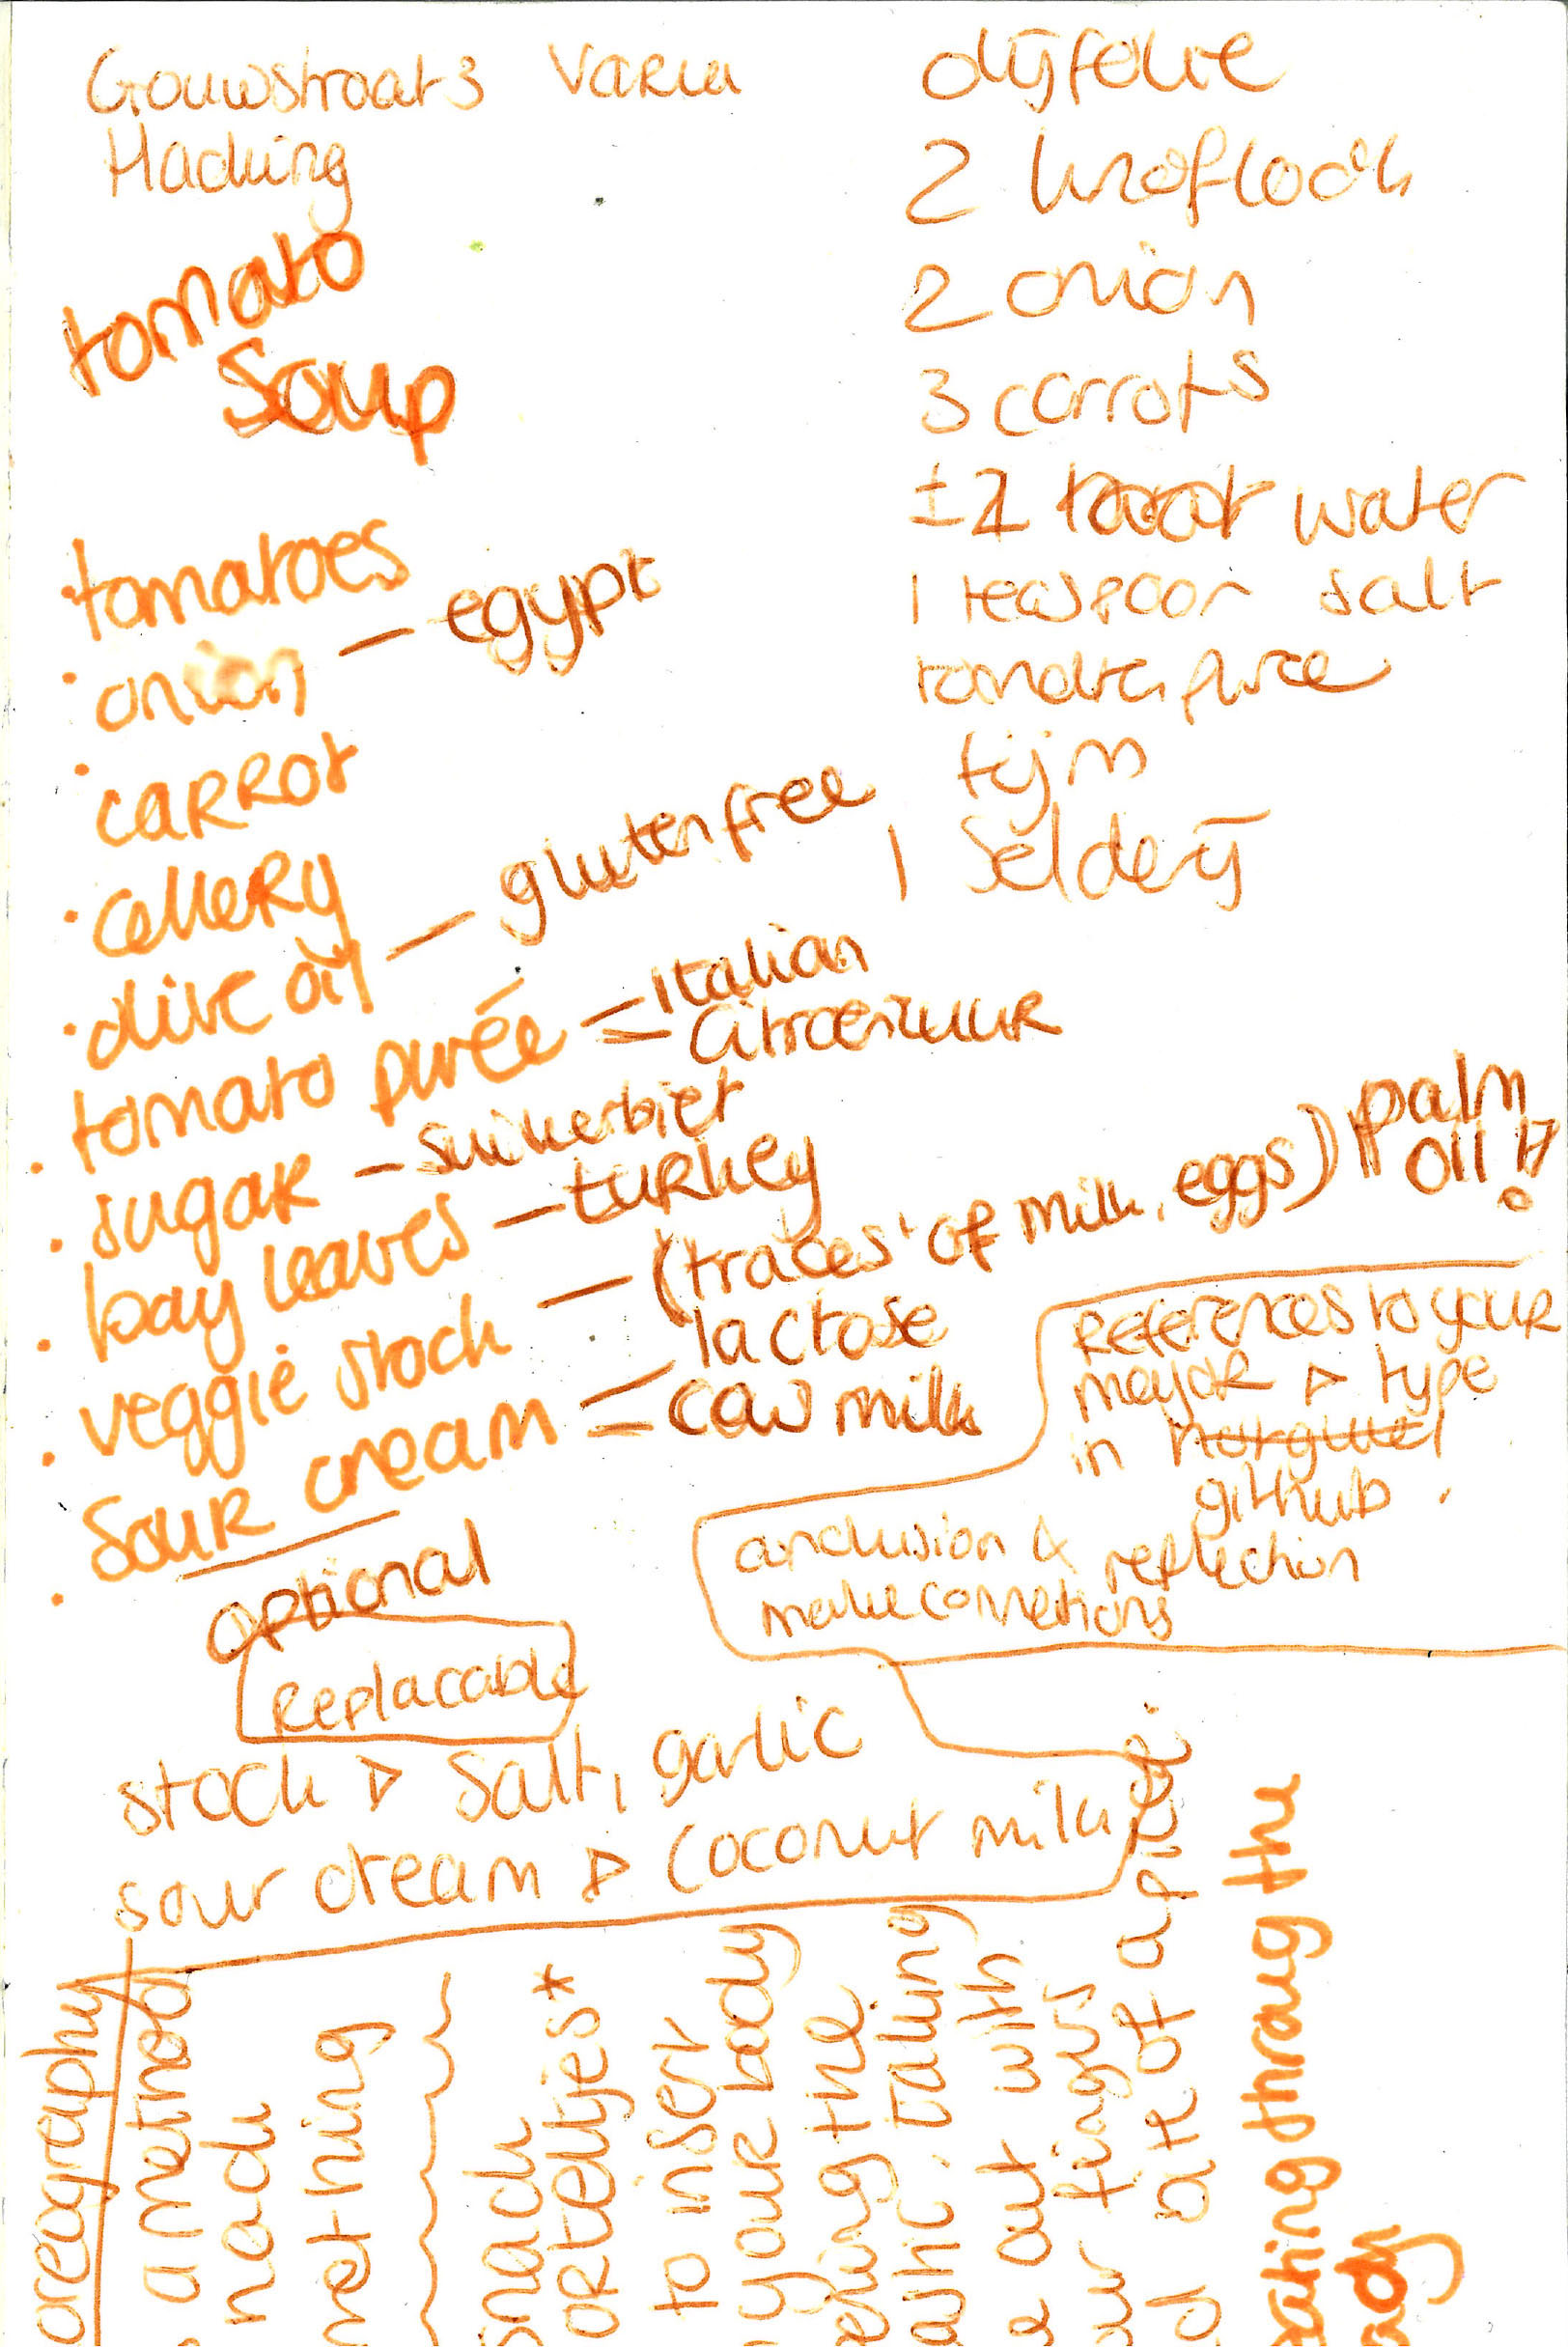 Gouwstraat 3 Varia
Hacking
tomato
Soup
• tomatoes
• onion — egypt
• carrot
• cellery
• olive oil — glutenfree
• tomato purée = Italian
citroenzuur
• sugar — suikerbiet
• bay leaves — turkey
• veggie stock — (traces of milk, eggs) palm
oil !!
• sour cream = lactose
cow milk
optional
Replacable
stock ▷ salt, garlic
sour cream ▷ coconut milk
olijfolie
2 knoflook
2 onion
3 carrots
±2 water
1 teaspoon salt
tomaten puree
tijm
1 Selderij
References to your
mayor ▷ type
in
github.
conclusion & reflection
make connections
oreography
a method
hack
thing
snack
orteltjes*
to insert
your body
the
taking
out with
fingers
of a
ating throug the